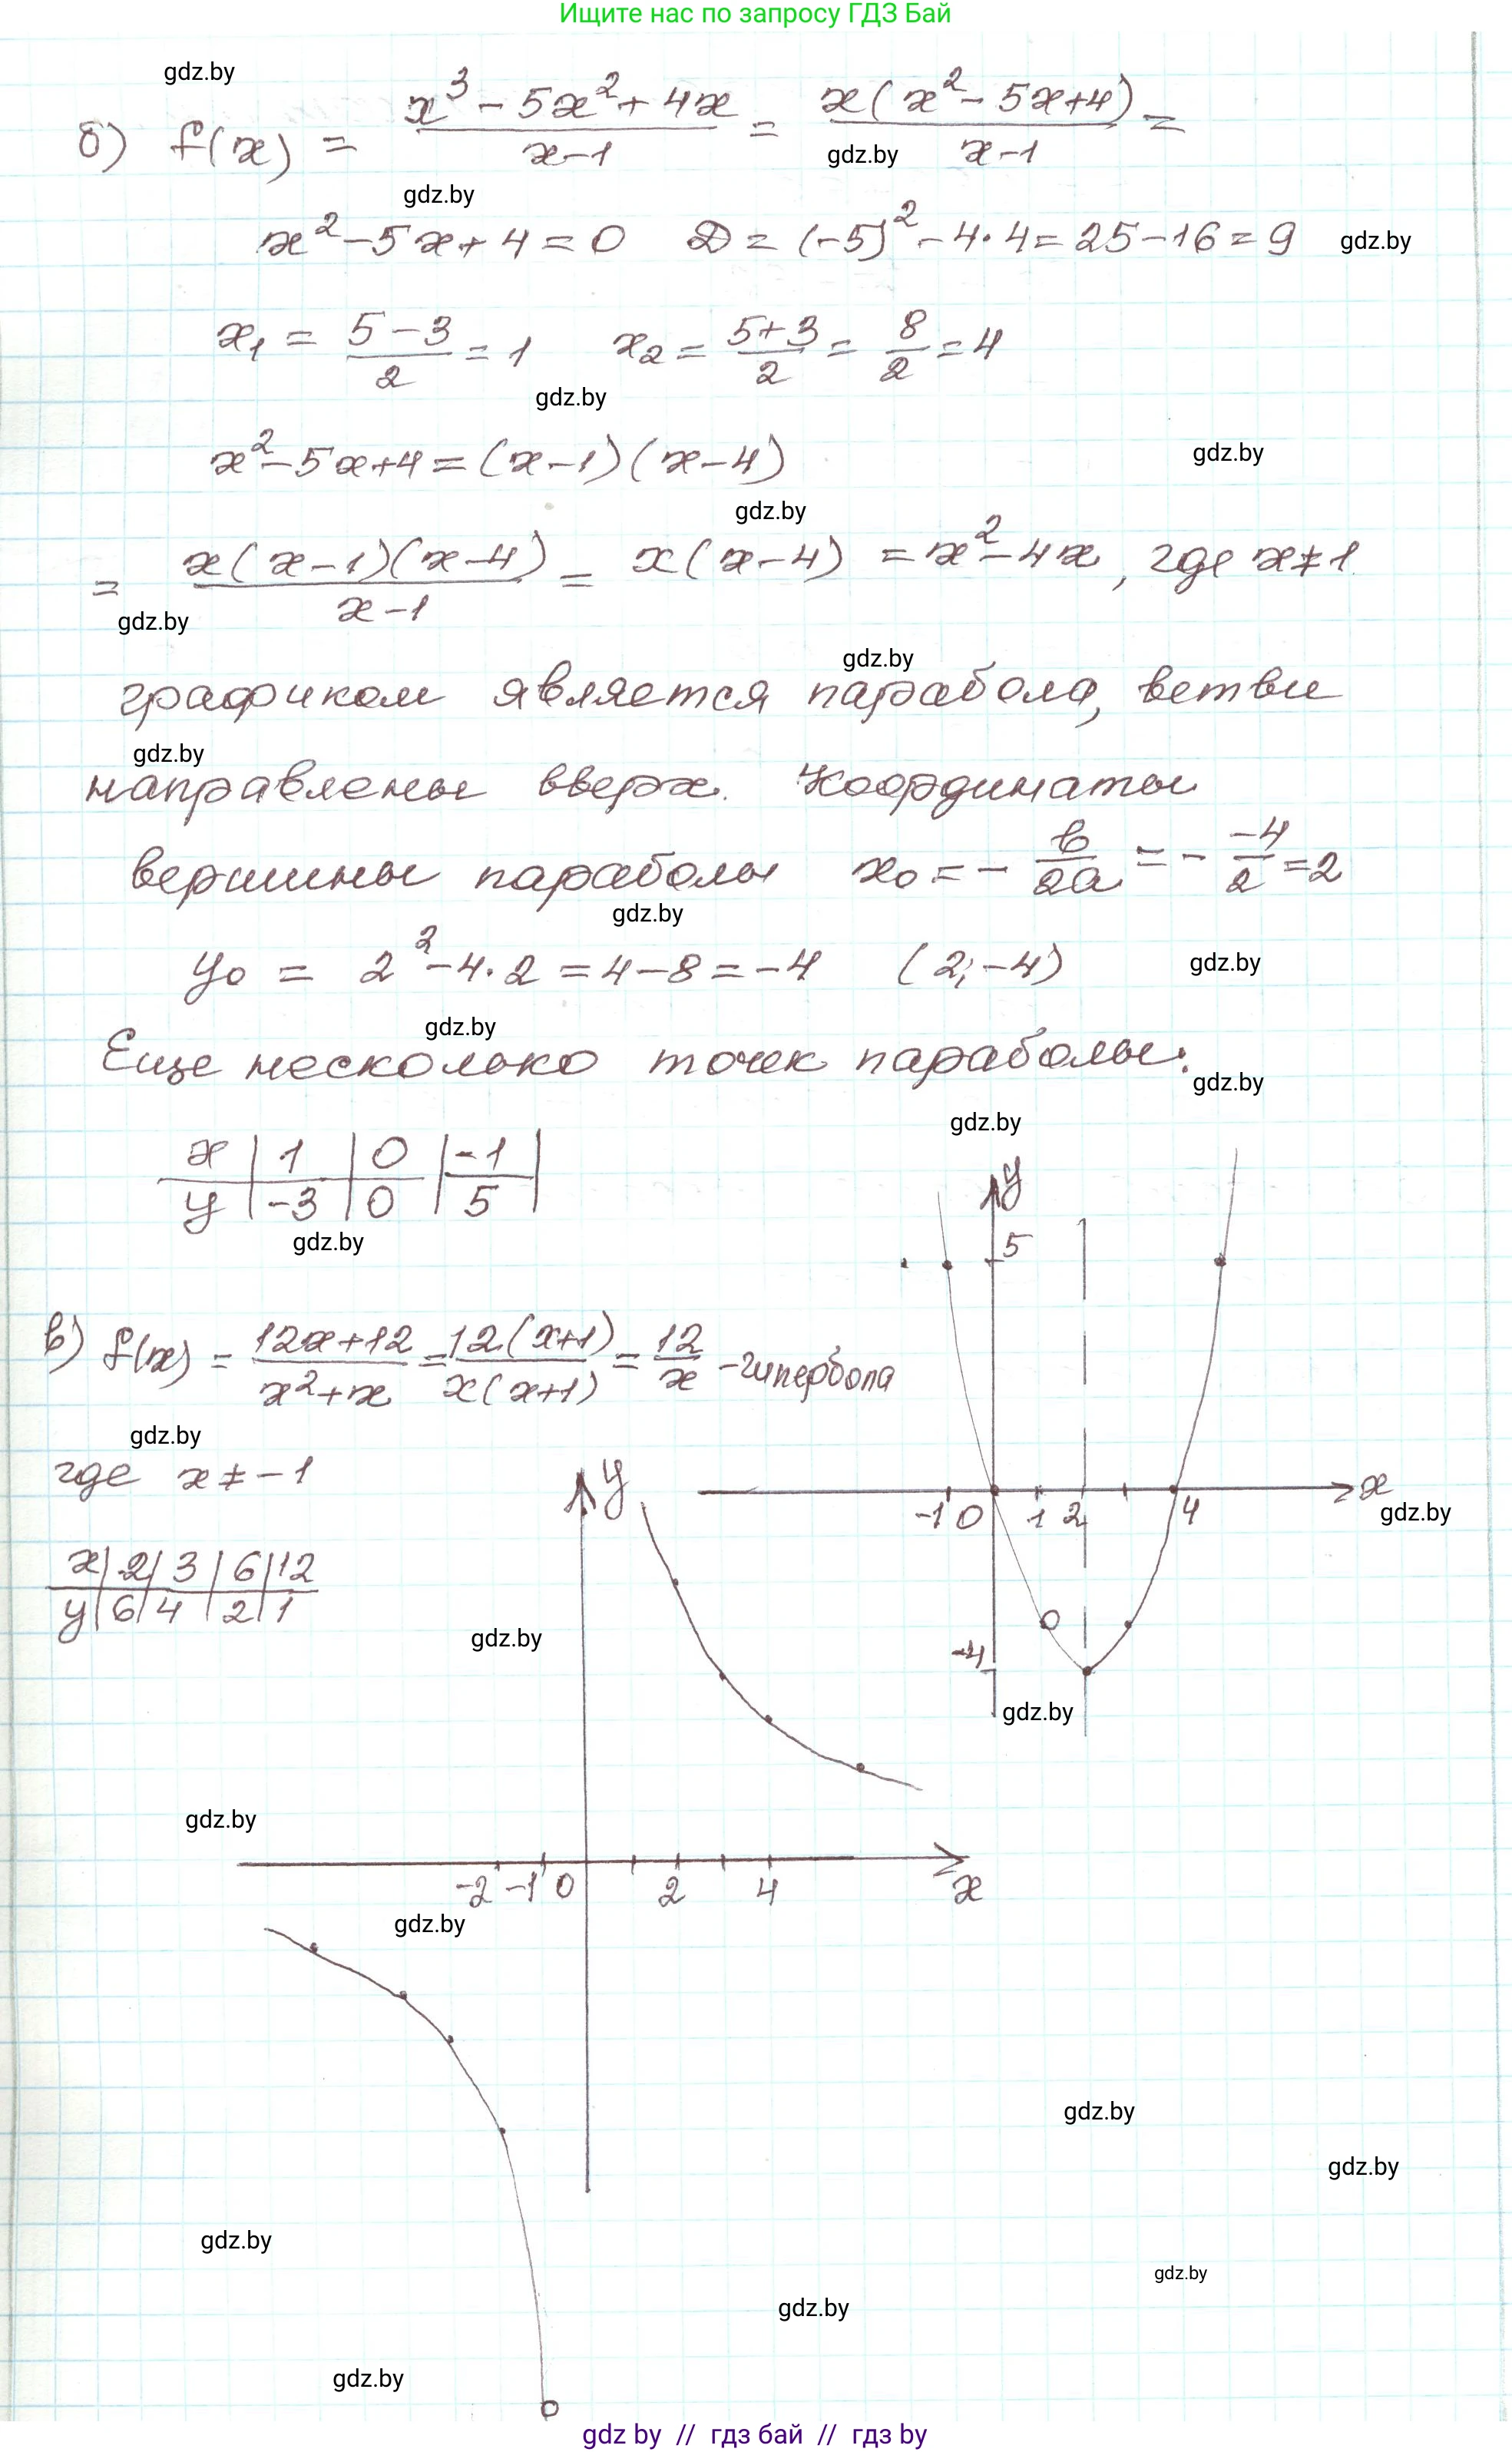 Ищите нас по запросу ГДЗ Бай
gdz.by
б) f(x) = (x³ - 5x² + 4x)/(x-1) = (x(x² - 5x+4))/(x-1) =
gdz.by
gdz.by
x² - 5x + 4 = 0   D = (-5)² - 4·4 = 25 - 16 = 9
gdz.by
x₁ = (5-3)/2 = 1   x₂ = (5+3)/2 = 8/2 = 4
gdz.by
x² - 5x+4 = (x-1)(x-4)
gdz.by
gdz.by
= (x(x-1)(x-4))/(x-1) = x(x-4) = x² - 4x, где x≠1
gdz.by
gdz.by
графиком является парабола, ветви
gdz.by
направлены вверх. Координаты
вершины параболы x₀ = - b/2a = - -4/2 = 2
gdz.by
y₀ = 2² - 4·2 = 4 - 8 = -4   (2; -4)
gdz.by
gdz.by
Еще несколько точек параболы:
gdz.by
gdz.by
x | 1 | 0 | -1
y | -3 | 0 | 5
gdz.by
y
5
-1 0 1 2 4
x
-4
gdz.by
gdz.by
в) f(x) = (12x+12)/(x²+x) = (12(x+1))/(x(x+1)) = 12/x - гипербола
gdz.by
где x ≠ -1
x | 2 | 3 | 6 | 12
y | 6 | 4 | 2 | 1
y
gdz.by
gdz.by
-2 -1 0 2 4
x
gdz.by
gdz.by
gdz.by
gdz.by
gdz.by
gdz.by
gdz.by
gdz by // гдз бай // гдз by